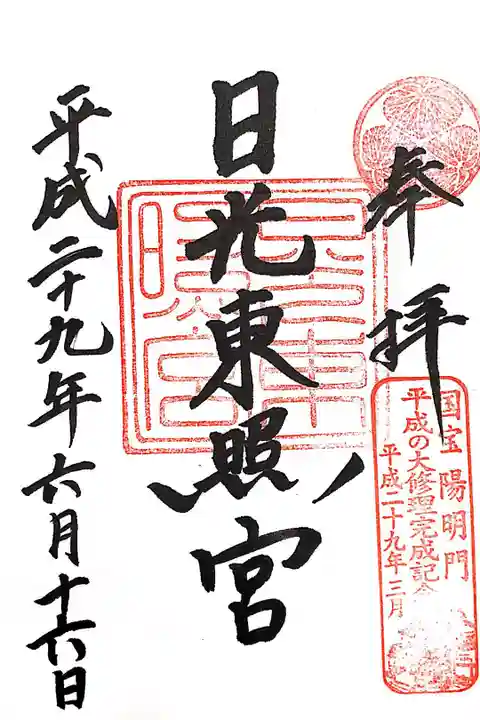 奉拝
国宝陽明門
平成の大修理完成記念
平成二十九年三月
日光東照宮
平成二十九年六月十六日